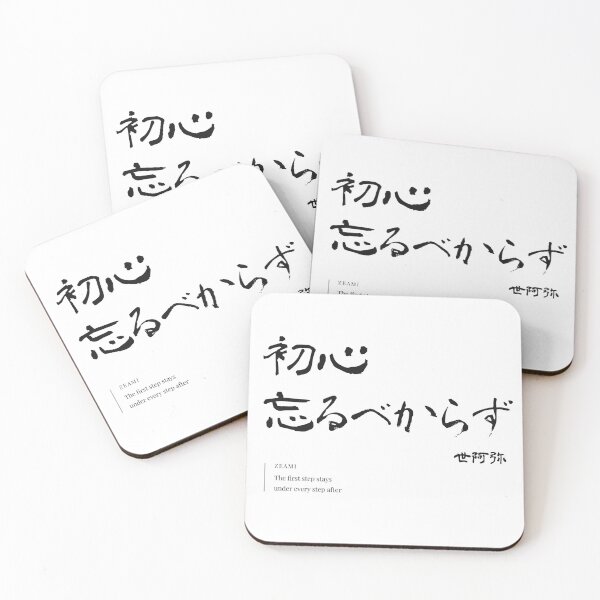 初心
忘るべから
初心
忘るべからず
世阿弥
ZEAMI
The first step stays
初心
忘るべからず
ZEAMI
The first step stays
under every step after
初心
忘るべからず
世阿弥
ZEAMI
The first step stays
under every step after